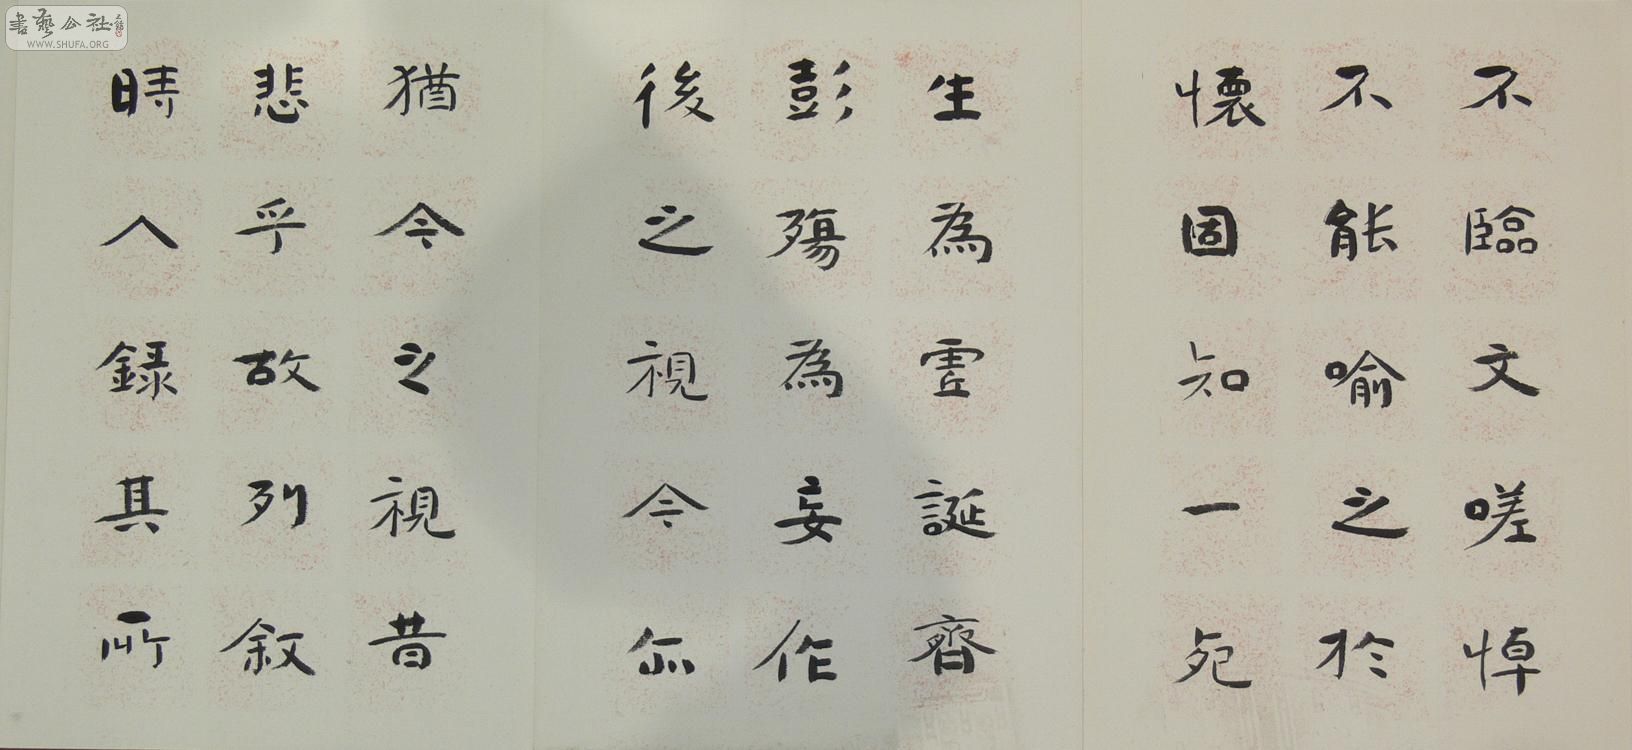 不臨文嗟悼
不能喻之於
懷固知一死
生為虛誕齊
彭殤為妄作
後之視今亦
猶今之視昔
悲乎故列叙
時人錄其所
書藝公社
WWW.SHUFA.ORG